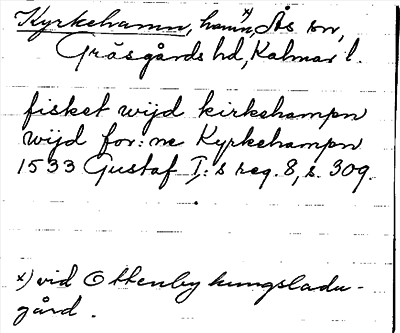 Kyrkehamn, hamn x) Ås sn,
Gräsgårds hd, Kalmar l.
fisket wijd kirkehampn
wijd for:ne Kyrkehampn
1533 Gustaf I:s reg. 8, s. 309.
x) vid Ottenby kungsladu-
gård.